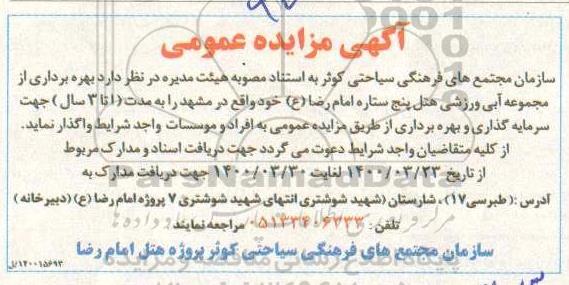 آگهی مزایده عمومی
سازمان مجتمع های فرهنگی سیاحتی کوثر به استناد مصوبه هیئت مدیره در نظر دارد بهره برداری از
مجموعه آبی ورزشی هتل پنج ستاره امام رضا (ع) خود واقع در مشهد را به مدت (۱ تا ۳ سال) جهت
سرمایه گذاری و بهره برداری از طریق مزایده عمومی به افراد و موسسات واجد شرایط واگذار نماید.
از کلیه متقاضیان واجد شرایط دعوت می گردد جهت دریافت اسناد و مدارک مربوط
از تاریخ ۱۴۰۰/۰۳/۲۳ لغایت ۱۴۰۰/۰۳/۳۰ جهت دریافت مدارک به
آدرس: (طبرسی ۱۷)، شارستان (شهید شوشتری انتهای شهید شوشتری ۷ پروژه امام رضا (ع) (دبیرخانه)
تلفن: ۰۵۱۳۳۴۰۶۷۳۳ مراجعه نمایند.
سازمان مجتمع های فرهنگی سیاحتی کوثر پروژه هتل امام رضا
۱۴۰۰۱۵۶۹۳/ل
ParsNamadData